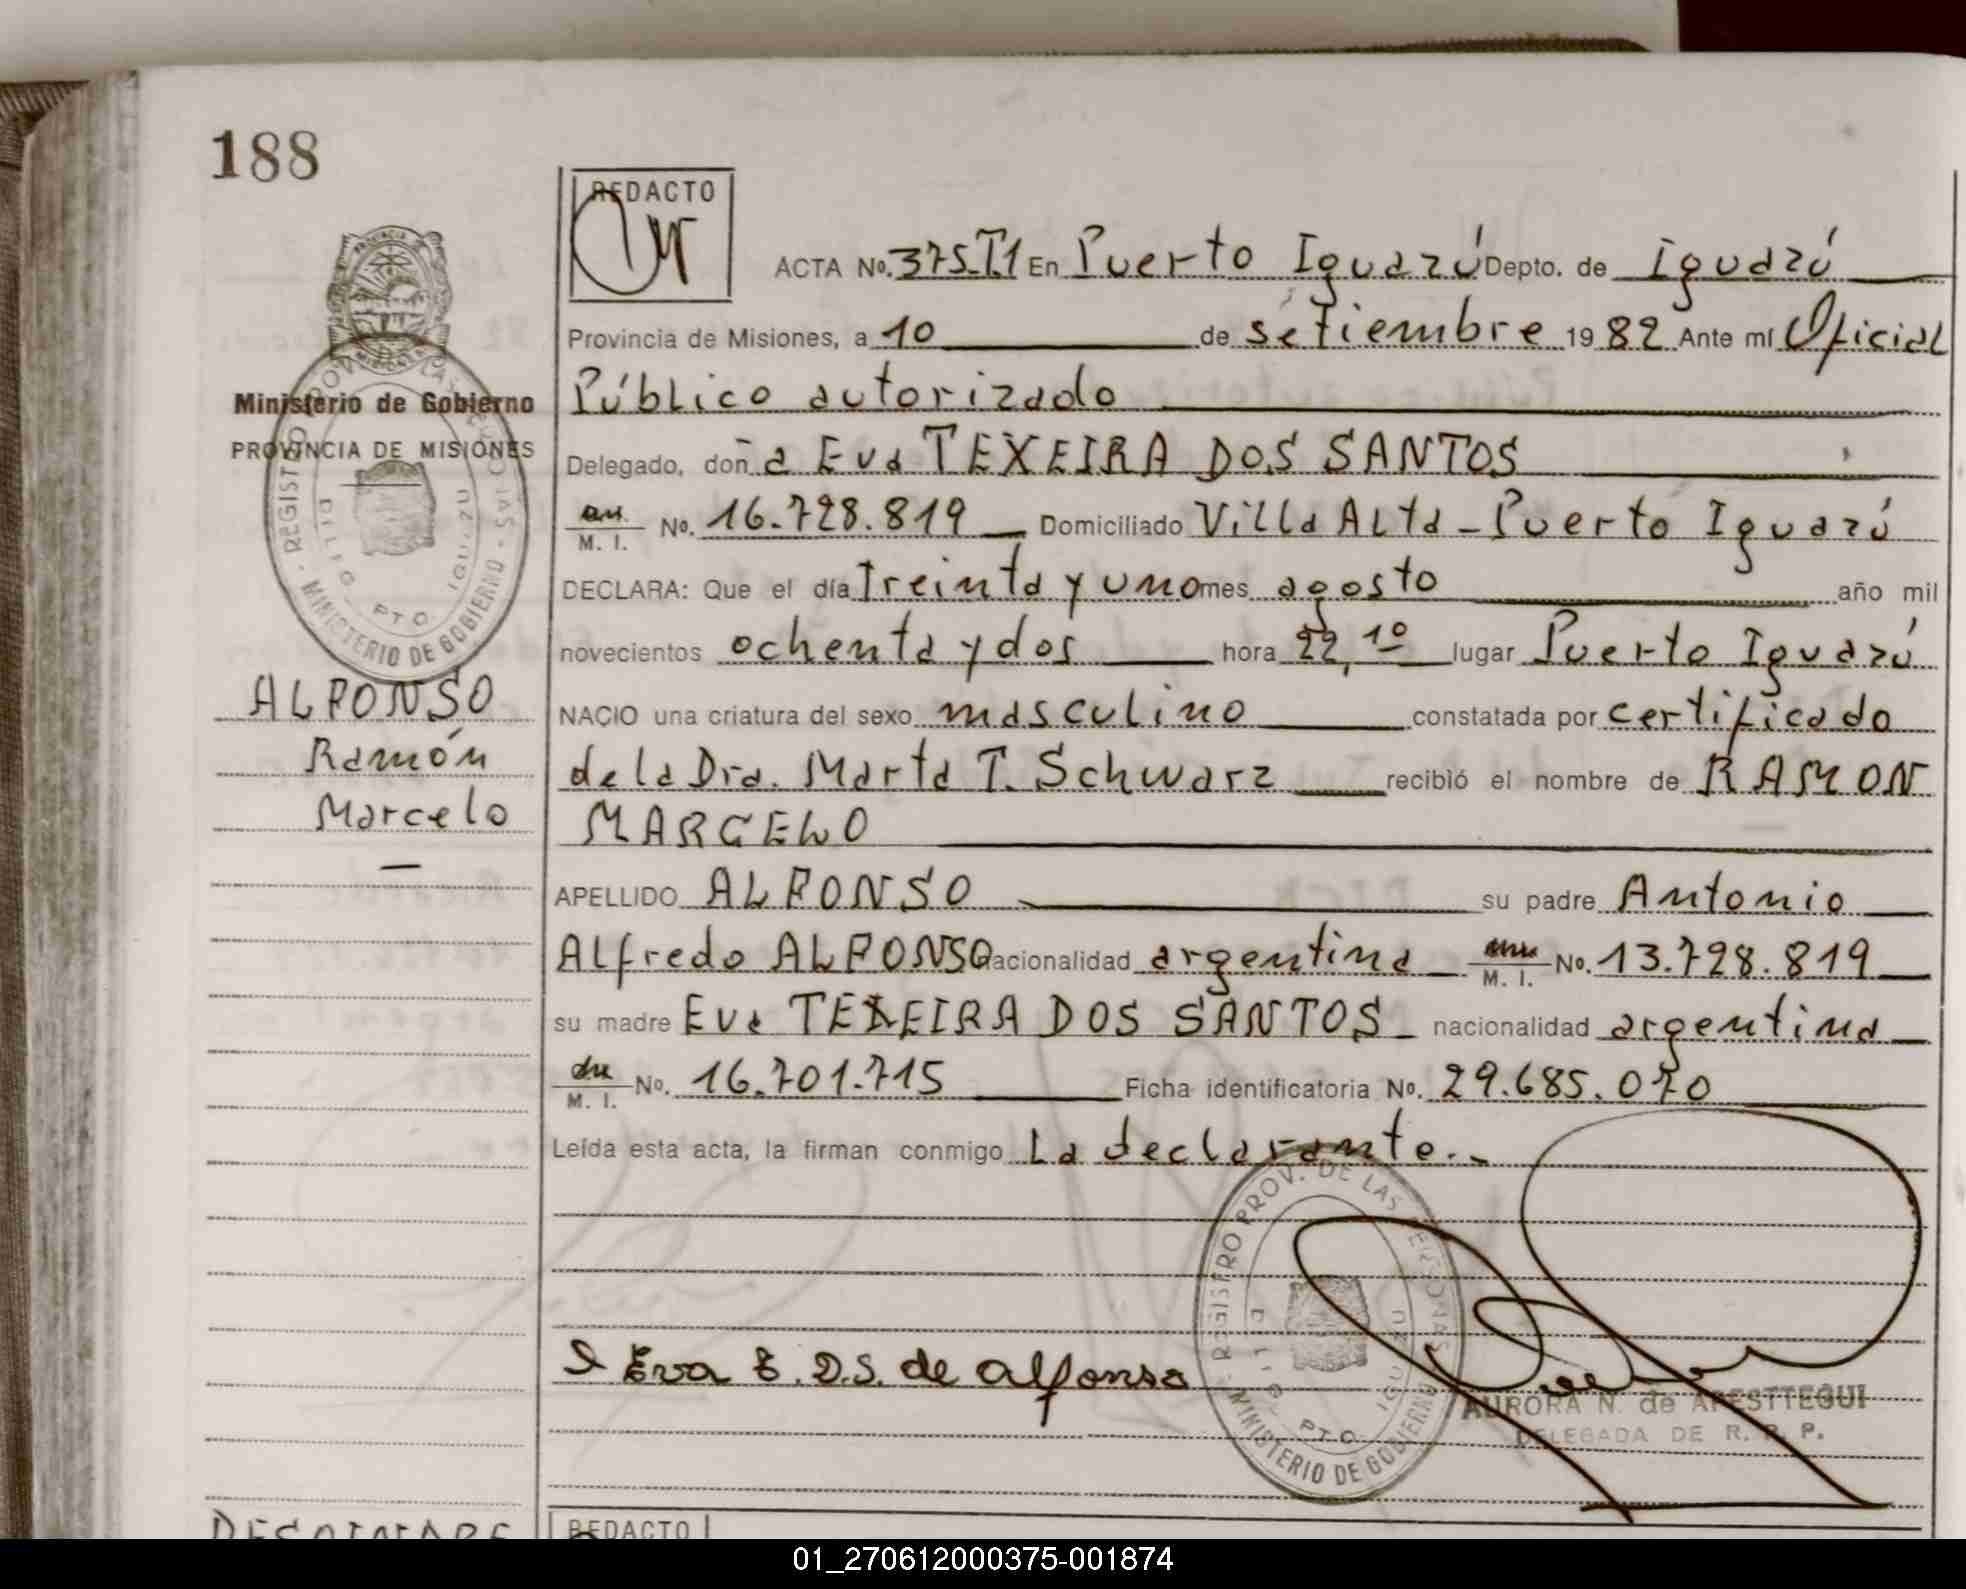 188
REDACTO
ACTA No. 375.T.1 En Puerto Iguazú Depto. de Iguazú
Provincia de Misiones, a 10 de setiembre 1982 Ante mí Oficial
Público autorizado
Ministerio de Gobierno
PROVINCIA DE MISIONES
Delegado, doñ a Eva TEXEIRA DOS SANTOS
M. I. No. 16.728.819 Domiciliado Villa Alta - Puerto Iguazú
DECLARA: Que el día treinta y uno mes agosto año mil
novecientos ochenta y dos hora 22,10 lugar Puerto Iguazú
REGISTRO PROV. DE LAS PERSONAS - MINISTERIO DE GOBIERNO
PTO IGUAZU
ALFONSO
Ramón
Marcelo
NACIO una criatura del sexo masculino constatada por certificado
de la Dra. Marta T. Schwarz recibió el nombre de RAMON
MARCELO
APELLIDO ALFONSO su padre Antonio
Alfredo ALFONSO nacionalidad argentina M. I. No. 13.728.819
su madre Eva TEXEIRA DOS SANTOS nacionalidad argentina
M. I. No. 16.701.715 Ficha identificatoria No. 29.685.070
Leída esta acta, la firman conmigo La declarante.-
REGISTRO PROV. DE LAS PERSONAS
PTO IGUAZU
MINISTERIO DE GOBIERNO
Eva T. D.S. de Alfonso
AURORA N. de APESTTEGUI
DELEGADA DE R. P. P.
REDACTO
01_270612000375-001874